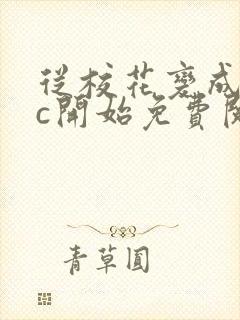 從校花變成
c開始免費閱
青草圓